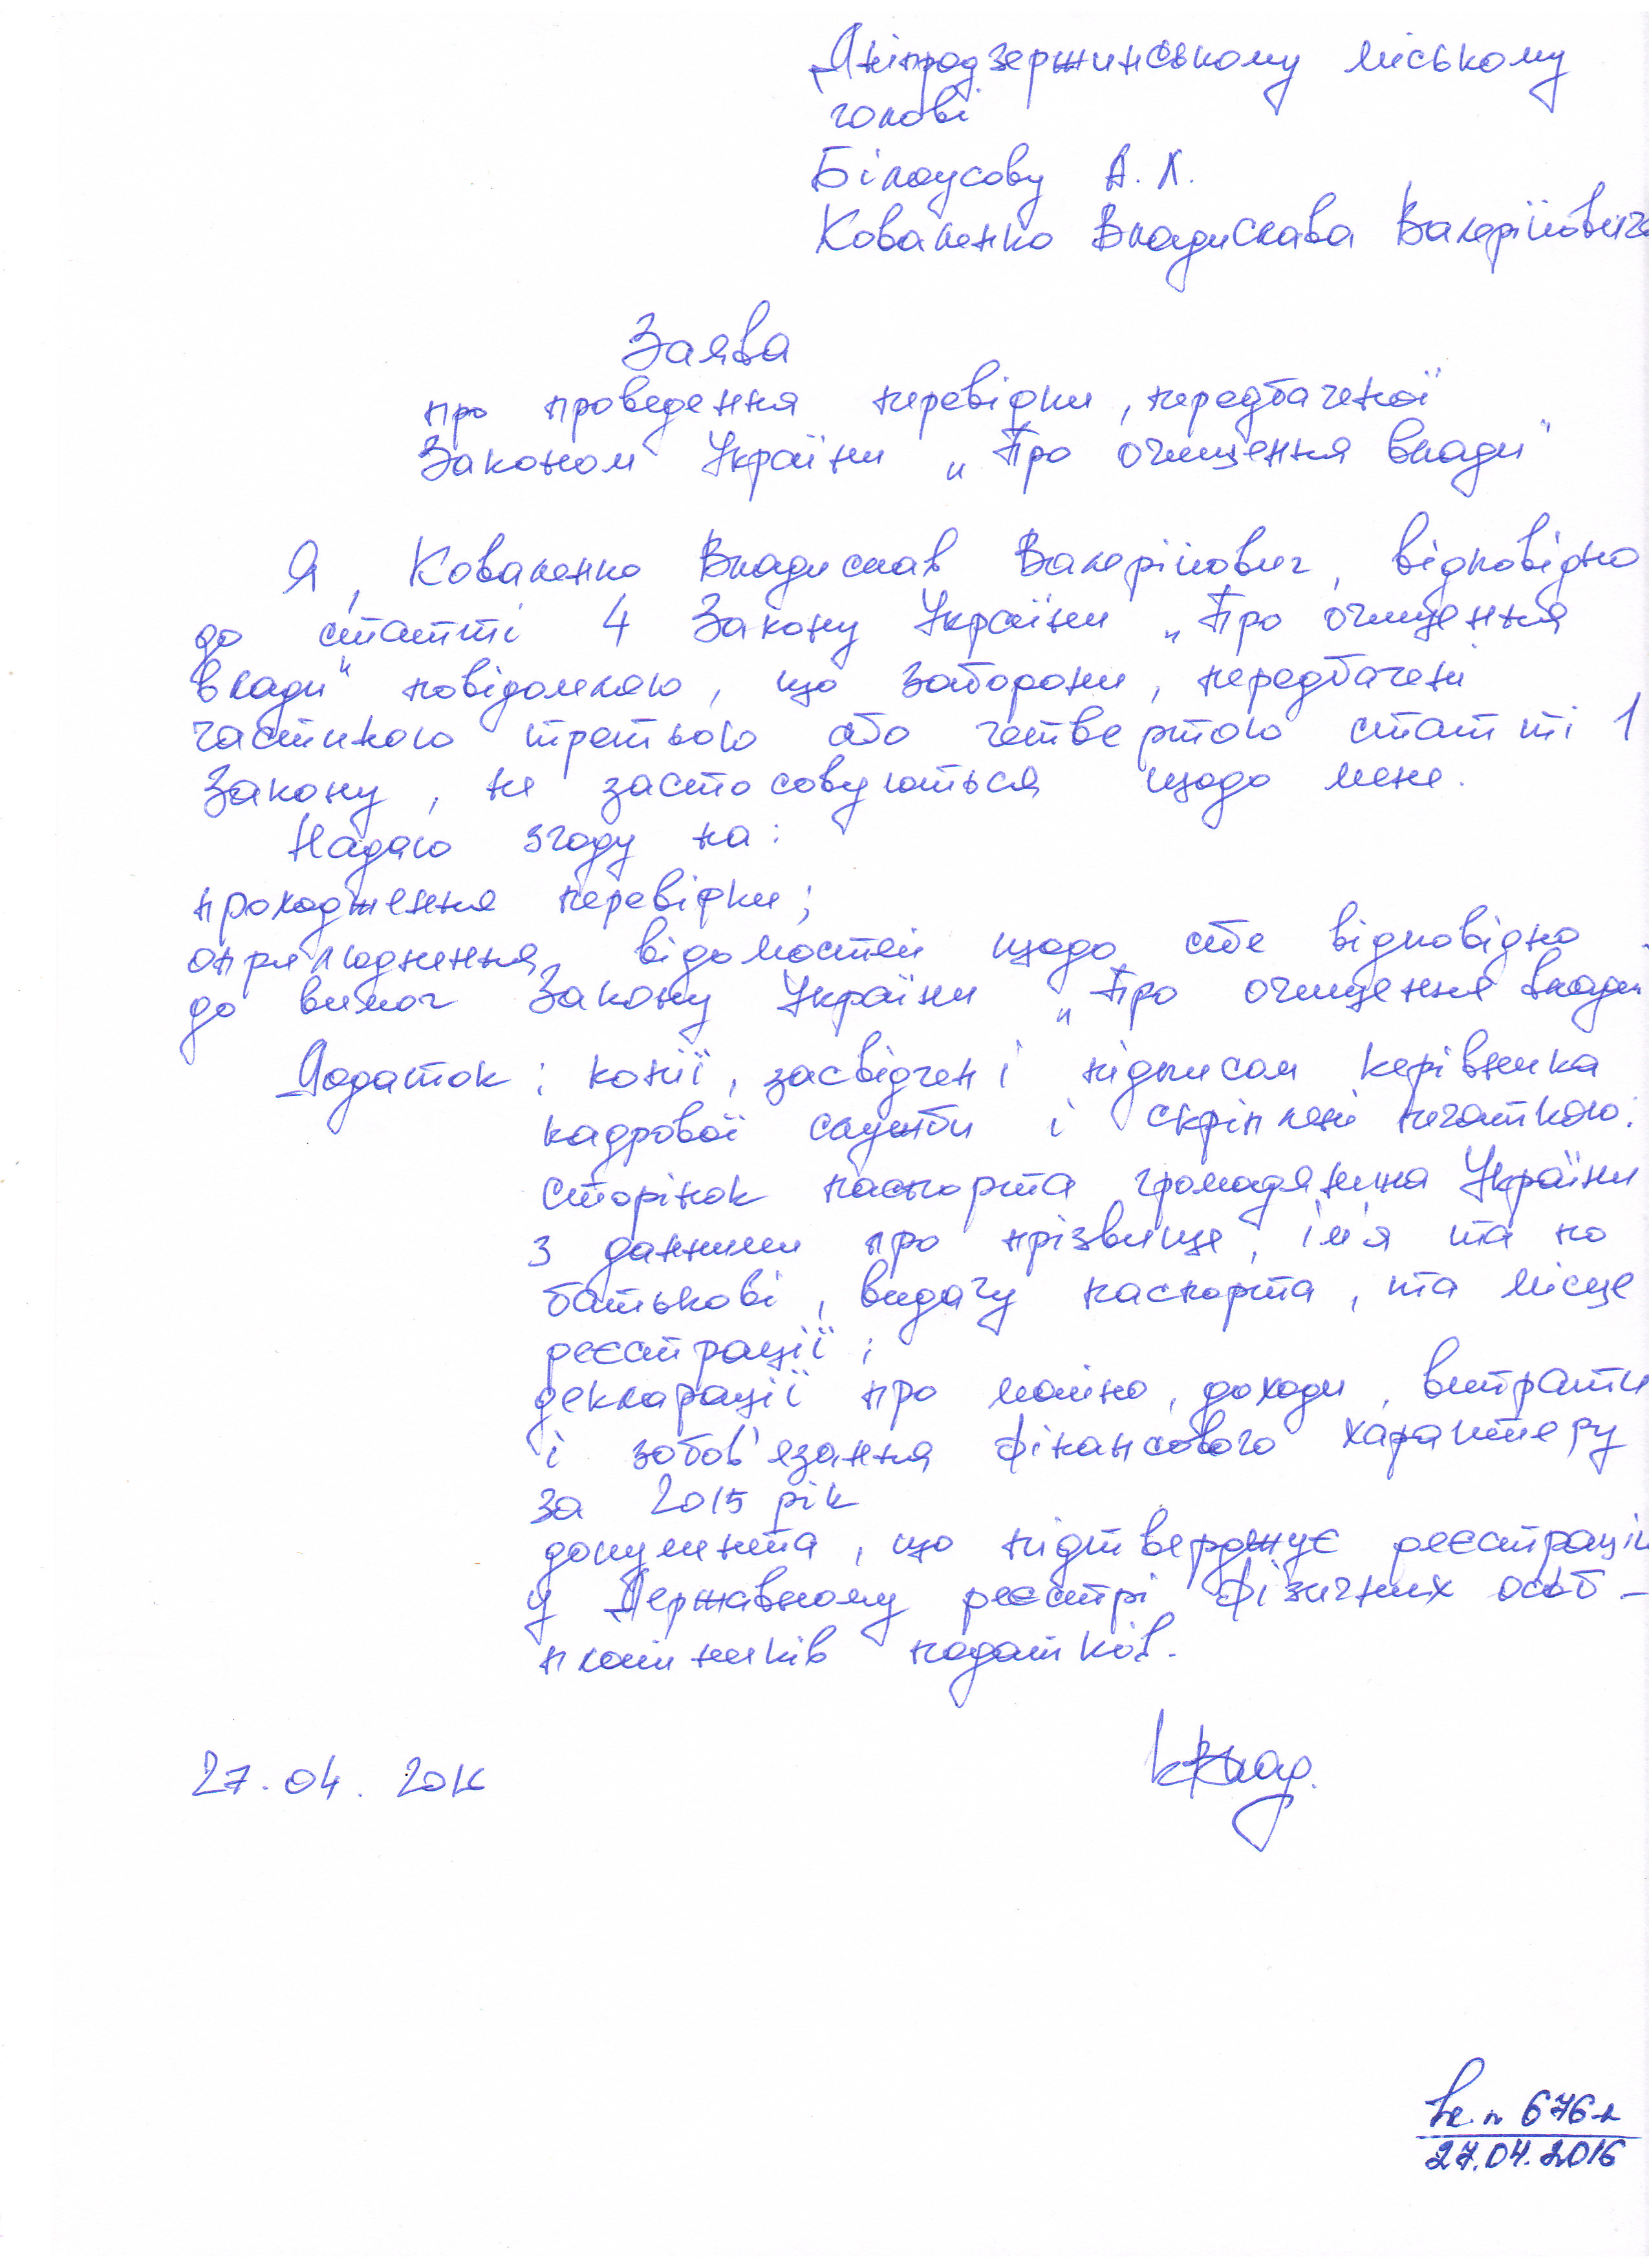 Дніпродзержинському міському
голові
Білоусову А. Л.
Коваленко Владислава Валерійовича
Заява
про проведення перевірки, передбаченої
Законом України „Про очищення влади"
Я, Коваленко Владислав Валерійович, відповідно
до статті 4 Закону України „Про очищення
влади" повідомляю, що заборони, передбачені
частиною третьою або четвертою статті 1
Закону, не застосовуються щодо мене.
Надаю згоду на:
проходження перевірки;
оприлюднення відомостей щодо себе відповідно
до вимог Закону України „Про очищення влади"
Додаток: копії, засвідчені підписом керівника
кадрової служби і скріплені печаткою:
сторінок паспорта громадянина України
з данними про прізвище, ім'я та по
батькові, видачу паспорта, та місце
реєстрації;
декларації про майно, доходи, витрати
і зобов'язання фінансового характеру
за 2015 рік
документа, що підтверджує реєстрацію
у Державному реєстрі фізичних осіб –
платників податків.
27.04.2016
676
27.04.2016